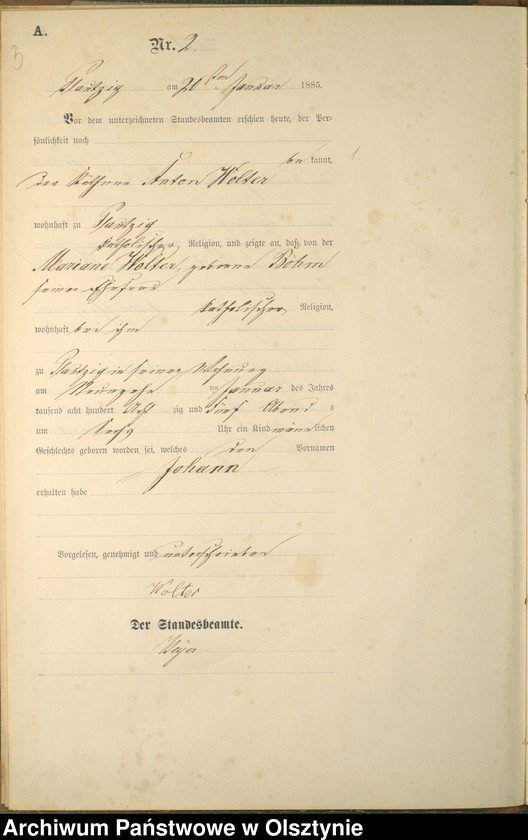 A.
Nr. 2.
3
Plautzig am 20ten Januar 1885.
Vor dem unterzeichneten Standesbeamten erschien heute, der Per-
sönlichkeit nach
be kannt,
der Käthner Anton Wolter
wohnhaft zu Plautzig
katholischer Religion, und zeigte an, daß von der
Mariane Wolter, geborene Böhm
seiner Ehefrau
katholischer Religion,
wohnhaft bei ihm
zu Plautzig in seiner Wohnung
am Neunzehn ten Januar des Jahres
tausend acht hundert Acht zig und fünf Abends
um sechs Uhr ein Kind männlichen
Geschlechts geboren worden sei, welches den Vornamen
Johann
erhalten habe
Vorgelesen, genehmigt und unterschrieben
Wolter
Der Standesbeamte.
Archiwum Państwowe w Olsztynie